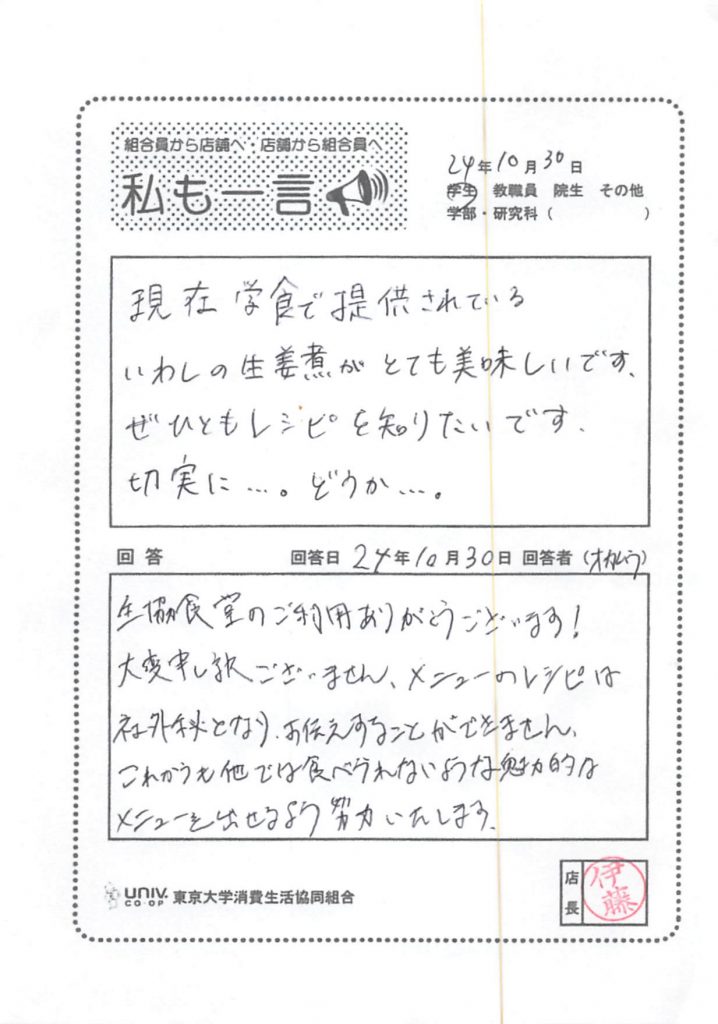 組合員から店舗へ・店舗から組合員へ
私も一言
24年10月30日
学生 教職員 院生 その他
学部・研究科( )
現在 学食で提供されている
いわしの生姜煮が とても美味しいです、
ぜひともレシピを知りたいです.
切実に…。どうか…。
回答 回答日 24年10月30日 回答者(オカムラ)
生協食堂のご利用ありがとうございます!
大変申し訳ございません、メニューのレシピは
社外秘となり、お伝えすることができません、
これからも他では食べられないような魅力的な
メニューを出せるよう努力いたします、
UNIV. CO-OP 東京大学消費生活協同組合
店長 伊藤